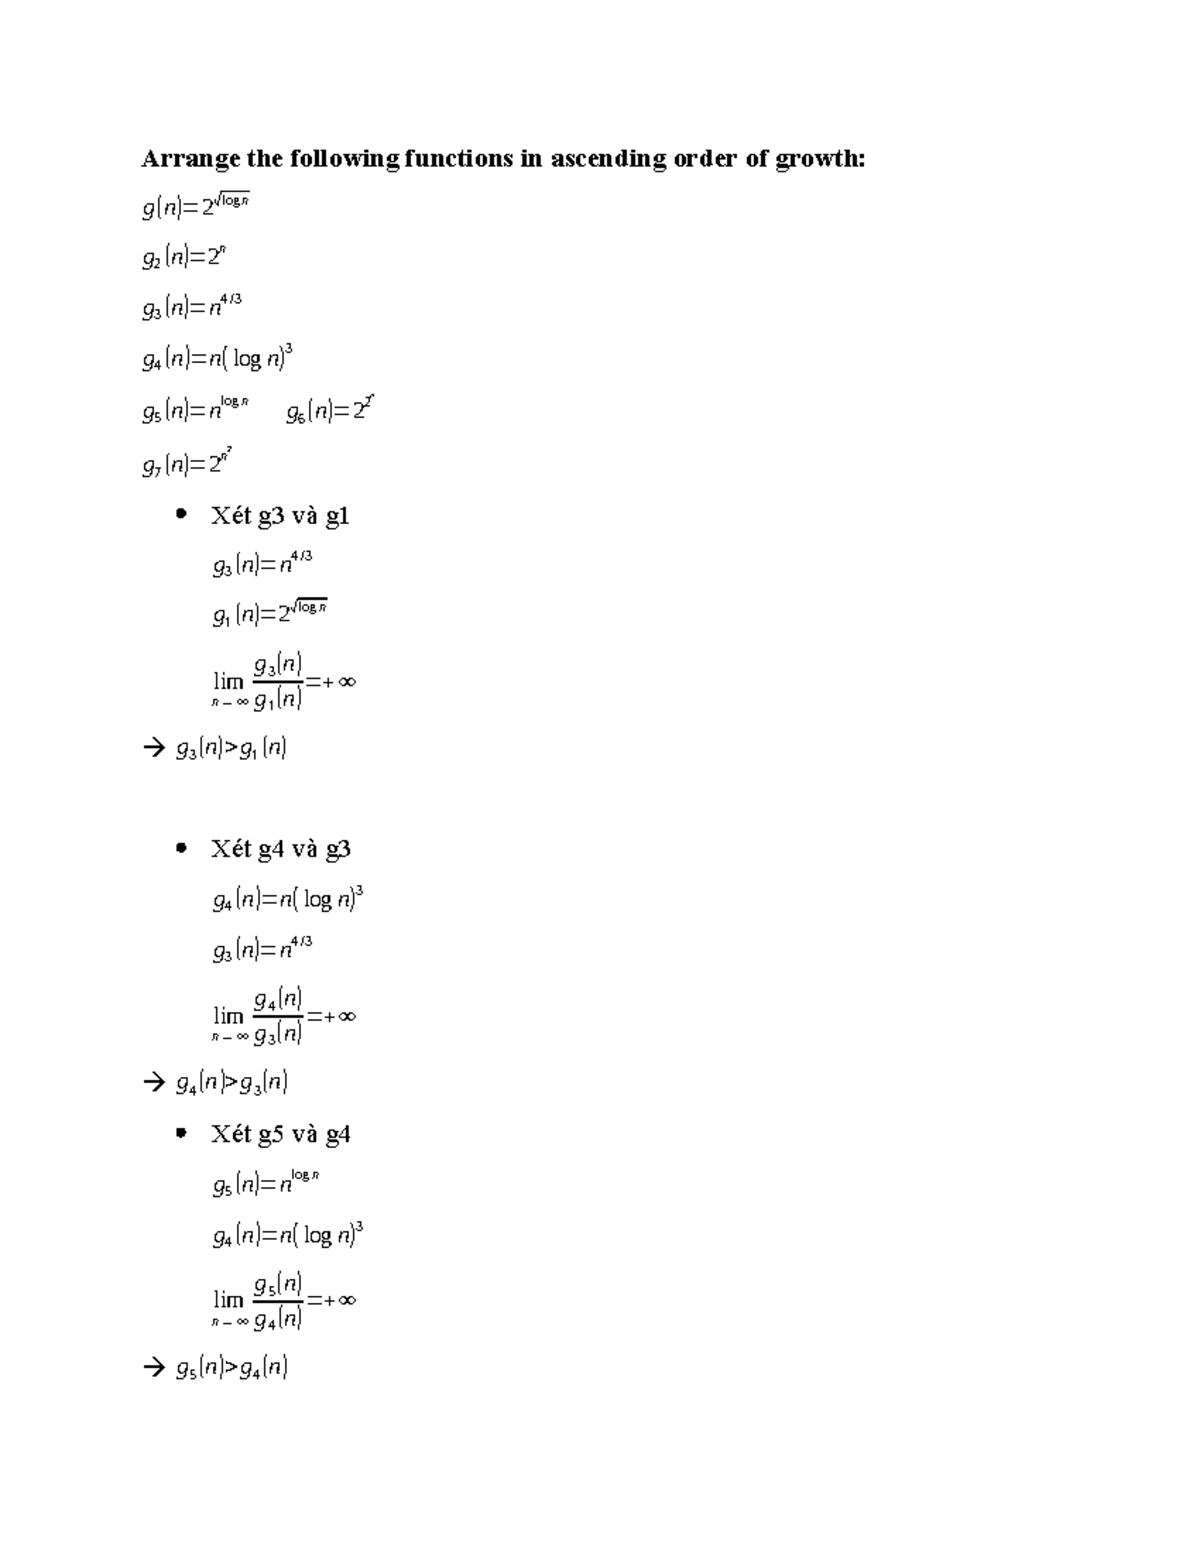 Arrange the following functions in ascending order of growth:
g(n)=2^√(log n)
g₂(n)=2ⁿ
g₃(n)=n^4/3
g₄(n)=n(log n)³
g₅(n)=n^log n g₆(n)=2^2ⁿ
g₇(n)=2^n²
• Xét g3 và g1
g₃(n)=n^4/3
g₁(n)=2^√(log n)
lim n→∞ g₃(n)/g₁(n)=+∞
→ g₃(n)>g₁(n)
• Xét g4 và g3
g₄(n)=n(log n)³
g₃(n)=n^4/3
lim n→∞ g₄(n)/g₃(n)=+∞
→ g₄(n)>g₃(n)
• Xét g5 và g4
g₅(n)=n^log n
g₄(n)=n(log n)³
lim n→∞ g₅(n)/g₄(n)=+∞
→ g₅(n)>g₄(n)